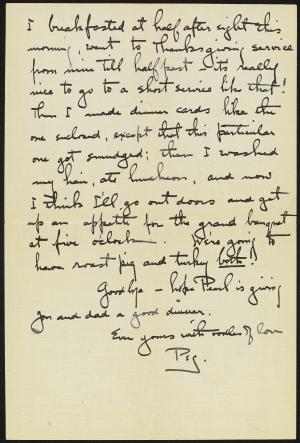 I breakfasted at half after eight this
morning, went to Thanksgiving service
from nine till half past - its really
nice to go to a short service like that!
Then I made dinner cards like the
one enclosed, except that this particular
one got smudged; then I washed
my hair, ate luncheon, and now
I think I'll go out doors and get
up an appetite for the grand banquet
at five o'clock. We're going to
have roast pig and turkey both!
Goodbye - hope Pearl is giving
you and dad a good dinner.
Ever yours with oodles of love
Peg.